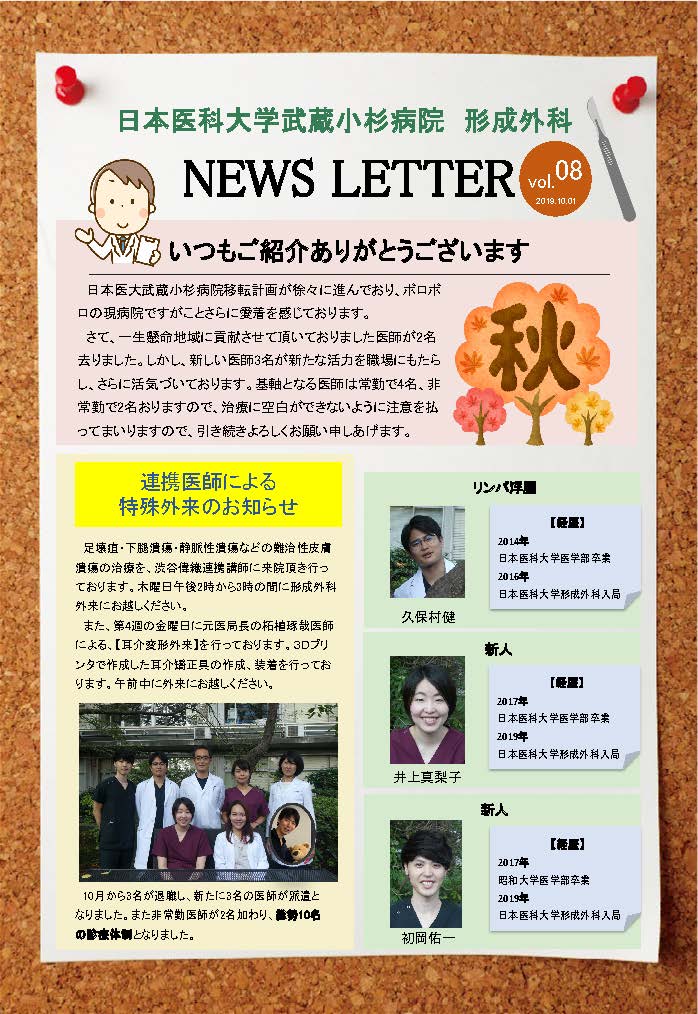 日本医科大学武蔵小杉病院 形成外科
NEWS LETTER
vol.08
2019.10.01
いつもご紹介ありがとうございます
日本医大武蔵小杉病院移転計画が徐々に進んでおり、ボロボ
ロの現病院ですがことさらに愛着を感じております。
さて、一生懸命地域に貢献させて頂いておりました医師が2名
去りました。しかし、新しい医師3名が新たな活力を職場にもたら
し、さらに活気づいております。基軸となる医師は常勤で4名、非
常勤で2名おりますので、治療に空白ができないように注意を払
ってまいりますので、引き続きよろしくお願い申しあげます。
秋
連携医師による
特殊外来のお知らせ
足壊疽・下腿潰瘍・静脈性潰瘍などの難治性皮膚
潰瘍の治療を、渋谷偉織連携講師に来院頂き行っ
ております。木曜日午後2時から3時の間に形成外科
外来にお越しください。
また、第4週の金曜日に元医局長の柘植琢哉医師
による、【耳介変形外来】を行っております。3Dプリ
ンタで作成した耳介矯正具の作成、装着を行ってお
ります。午前中に外来にお越しください。
10月から3名が退職し、新たに3名の医師が派遣と
なりました。また非常勤医師が2名加わり、総勢10名
の診療体制となりました。
リンパ浮腫
【経歴】
2014年
日本医科大学医学部卒業
2016年
日本医科大学形成外科入局
久保村健
新人
【経歴】
2017年
日本医科大学医学部卒業
2019年
日本医科大学形成外科入局
井上真梨子
新人
【経歴】
2017年
昭和大学医学部卒業
2019年
日本医科大学形成外科入局
初岡佑一